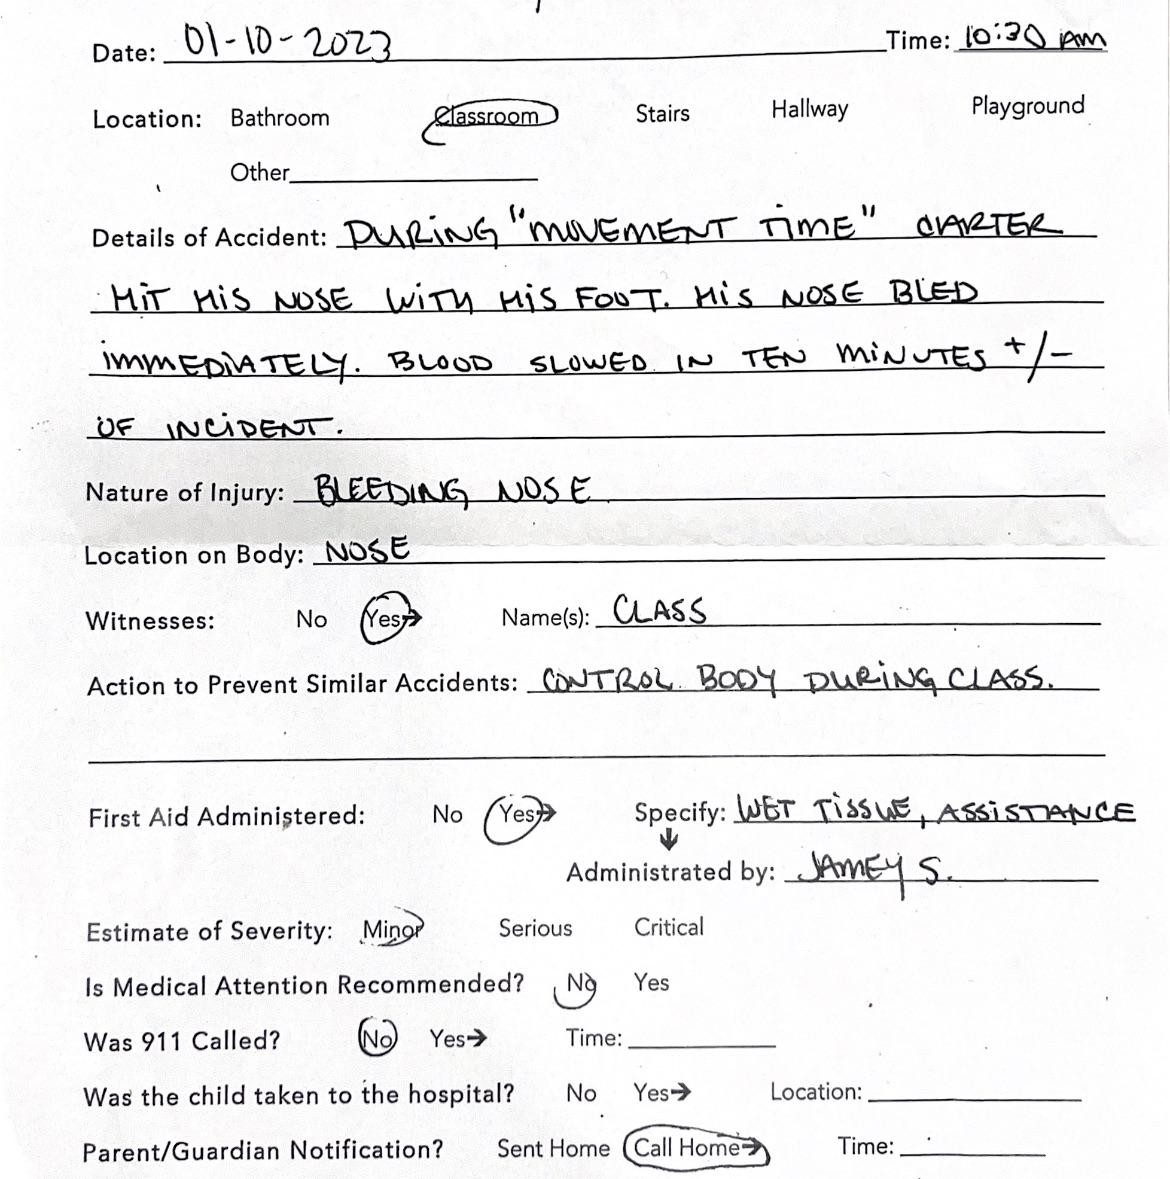 Date: 01-10-2023 Time: 10:30 AM
Location: Bathroom Classroom Stairs Hallway Playground
Other
Details of Accident: DURING "MOVEMENT TIME" CARTER
HIT HIS NOSE WITH HIS FOOT. HIS NOSE BLED
IMMEDIATELY. BLOOD SLOWED IN TEN MINUTES +/-
OF INCIDENT.
Nature of Injury: BLEEDING NOSE
Location on Body: NOSE
Witnesses: No Yes→ Name(s): CLASS
Action to Prevent Similar Accidents: CONTROL BODY DURING CLASS.
First Aid Administered: No Yes→ Specify: WET TISSUE, ASSISTANCE
Administrated by: JAMEY S.
Estimate of Severity: Minor Serious Critical
Is Medical Attention Recommended? No Yes
Was 911 Called? No Yes→ Time:
Was the child taken to the hospital? No Yes→ Location:
Parent/Guardian Notification? Sent Home Call Home→ Time: